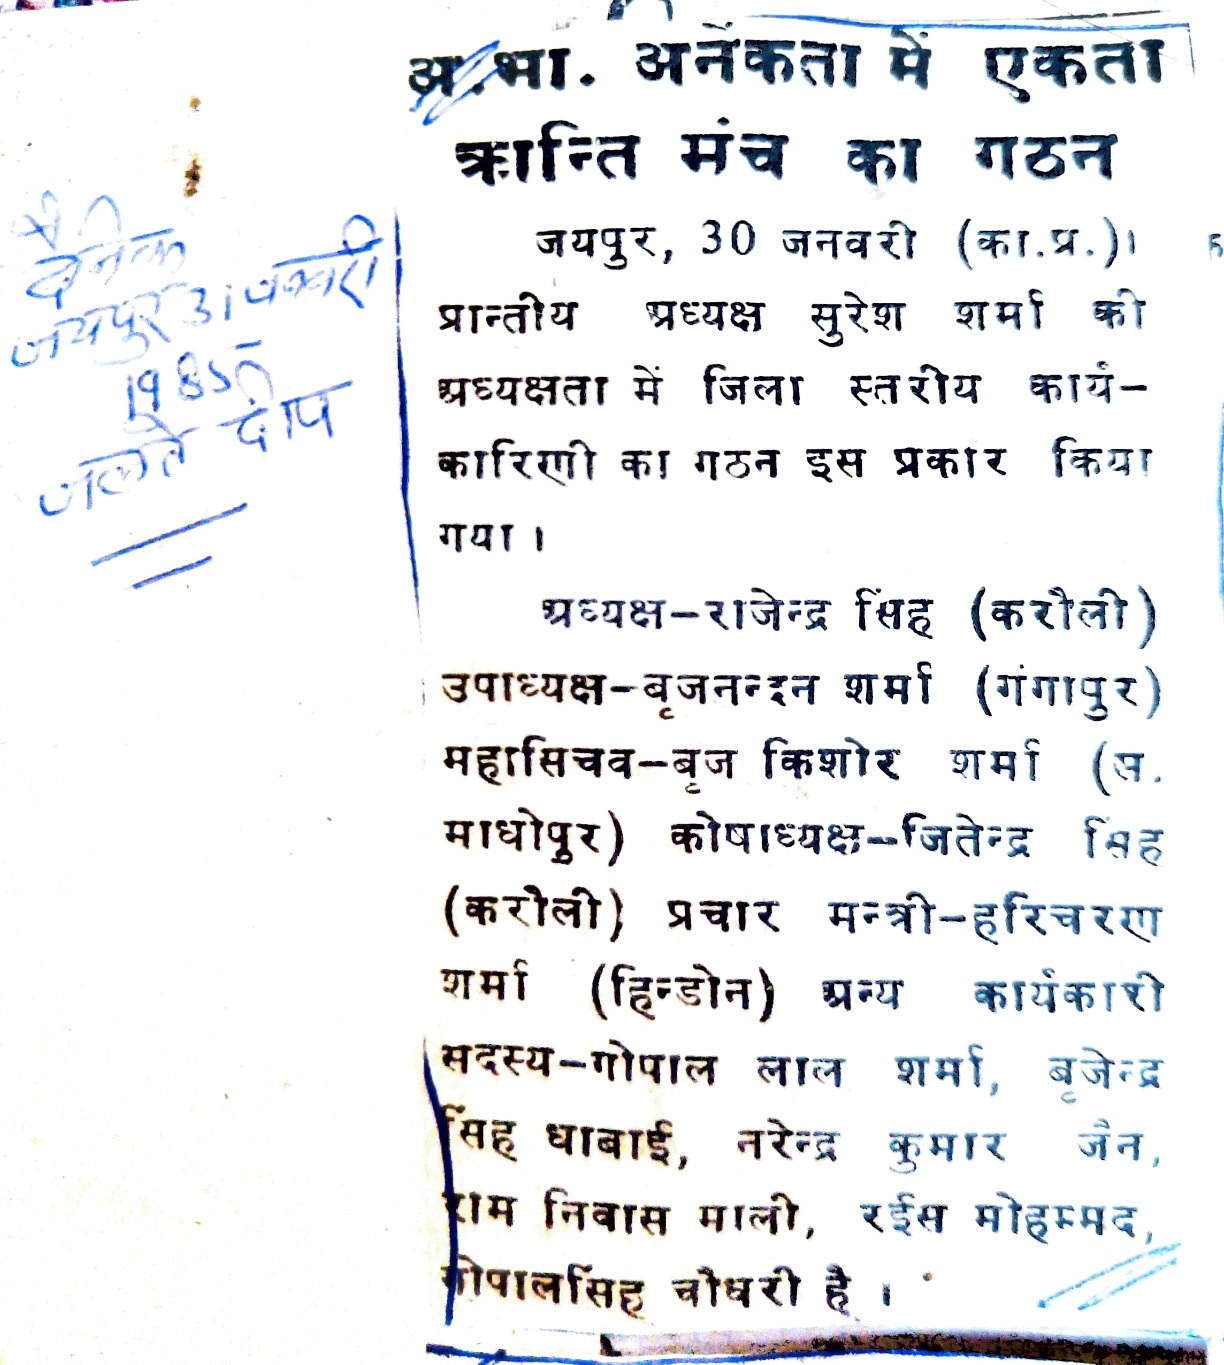 अ.भा. अनेंकता में एकता
क्रान्ति मंच का गठन
जयपुर, 30 जनवरी (का.प्र.)।
प्रान्तीय अध्यक्ष सुरेश शर्मा की
अध्यक्षता में जिला स्तरीय कार्य-
कारिणी का गठन इस प्रकार किया
गया।
अध्यक्ष-राजेन्द्र सिंह (करौली)
उपाध्यक्ष-बृजनन्दन शर्मा (गंगापुर)
महासिचव-बृज किशोर शर्मा (स.
माधोपुर) कोषाध्यक्ष-जितेन्द्र सिंह
(करौली) प्रचार मन्त्री-हरिचरण
शर्मा (हिन्डोन) अन्य कार्यकारी
सदस्य-गोपाल लाल शर्मा, बृजेन्द्र
सिंह धाबाई, नरेन्द्र कुमार जैन,
राम निवास माली, रईस मोहम्मद,
गोपालसिंह चौधरी है।
दैनिक
जयपुर 31 जनवरी
1985
जलते दीप